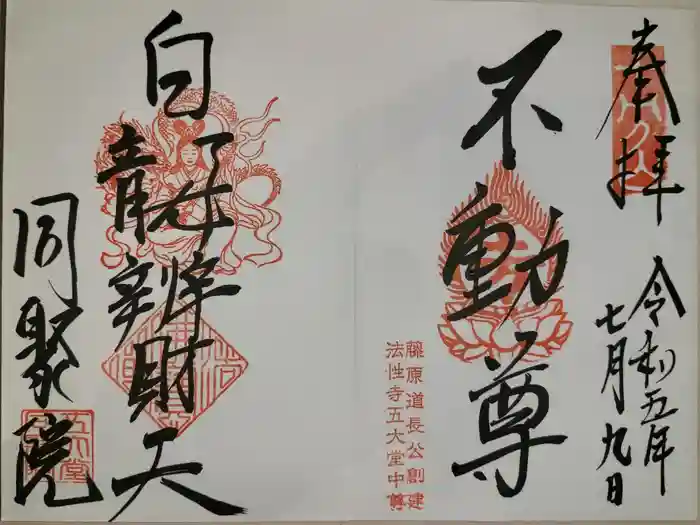 奉拝
令和五年
七月九日
不動尊
藤原道長公創建
法性寺五大堂中尊
白龍辨財天
同聚院
五大堂